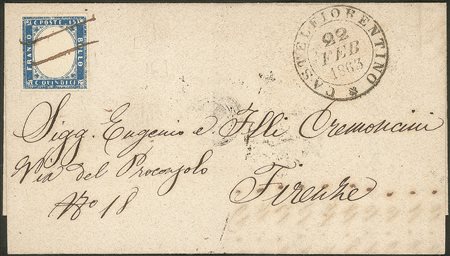 C. POSTE 15
FRANCO
BOLLO
C. QUINDICI
CASTELFIORENTINO
22
FEB
1863
Sigg. Eugenio e Flli Cremoncini
Via del Proconsolo
No 18
Firenze